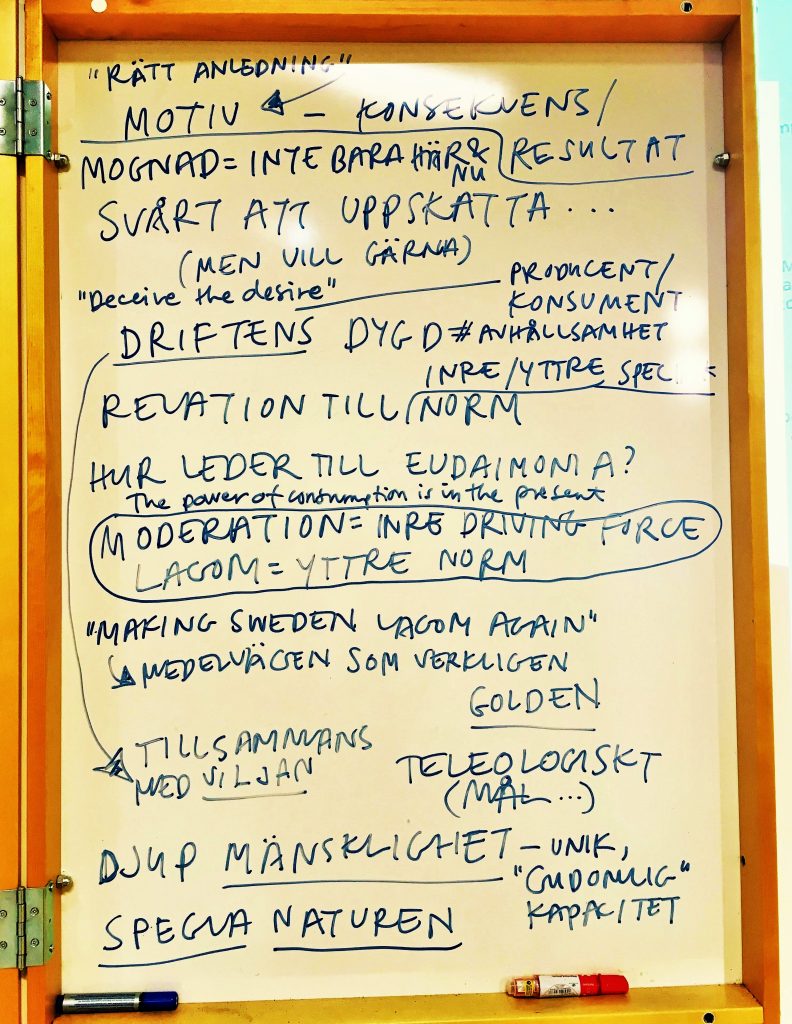 "RÄTT ANLEDNING"
MOTIV – KONSEKVENS/
RESULTAT
MOGNAD = INTE BARA HÄR & NU
SVÅRT ATT UPPSKATTA ...
(MEN VILL GÄRNA)
"Deceive the desire"
PRODUCENT/
KONSUMENT
DRIFTENS DYGD # AVHÅLLSAMHET
INRE/YTTRE
RELATION TILL NORM
HUR LEDER TILL EUDAIMONIA?
The power of consumption is in the present
MODERATION = INRE DRIVING FORCE
LAGOM = YTTRE NORM
"MAKING SWEDEN LAGOM AGAIN"
MEDELVÄGEN SOM VERKLIGEN
GOLDEN
TILLSAMMANS
MED VILJAN
TELEOLOGISKT
(MÅL ...)
DJUP MÄNSKLIGHET – UNIK,
"GUDOMLIG"
KAPACITET
SPEGLA NATUREN